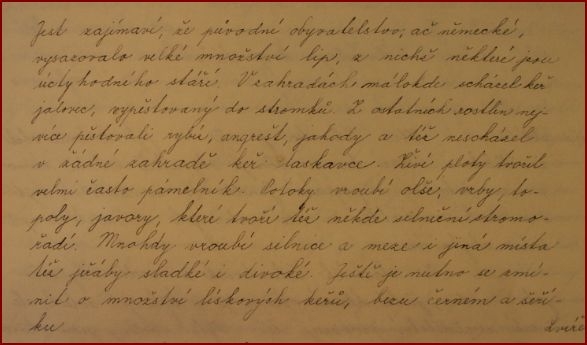 Jest zajímaví, že původní obyvatelstvo, ač německé,
vysazovalo velké množství lip, z nichž některé jsou
úctyhodného stáří. V zahradách málokde scházel keř
jalovec, vypěstovaný do stromků. Z ostatních rostlin nej-
více pěstovali rybíz, angrešt, jahody a též nescházel
v žádné zahradě keř laskavce. Živí ploty tvořil
velmi často pamelník. Potoky vroubí olše, vrby, to-
poly, javory, které tvoří též někde silniční stromo-
řadí. Mnohdy vroubí silnice a meze i jiná místa
též jřáby sladké i divoké. Ještě je nutno se zmí-
nit o množství lískových keřů, bezu černém a šeří-
ku Zvíře